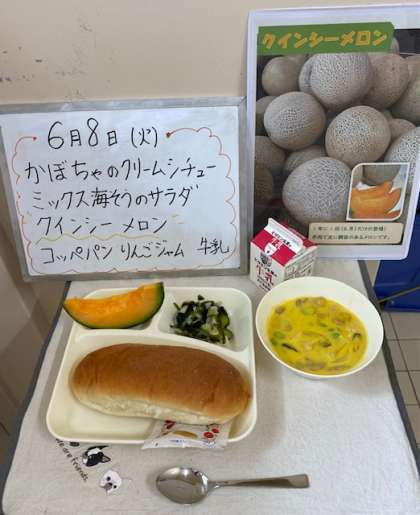 6月8日(火)
かぼちゃのクリームシチュー
ミックス海そうのサラダ
クインシー メロン
コッペパン りんごジャム 牛乳
クインシーメロン
牛乳
We are Friends.